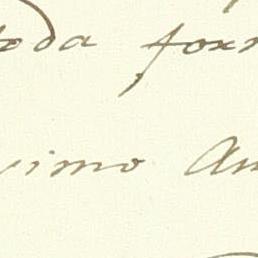 toda for
simo An